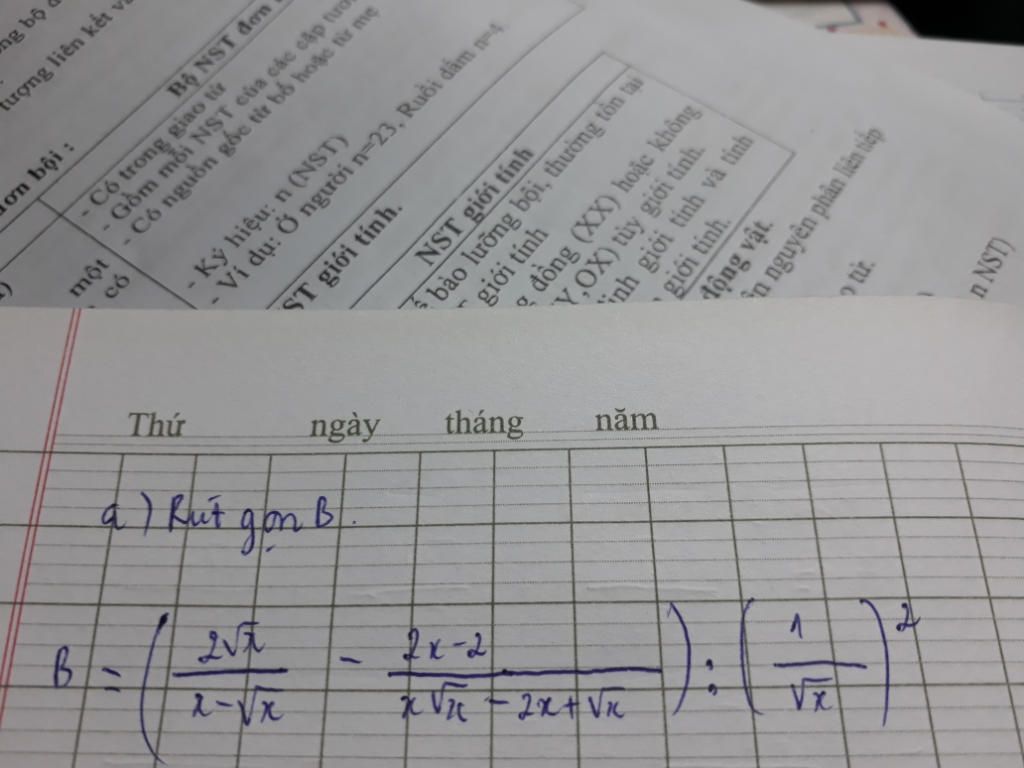 tượng liên kết
Bộ NST đơn
đơn bội :
- Có trong giao tử
- Gồm mỗi NST của các cặp tương
- Có nguồn gốc từ bố hoặc từ mẹ
một
có
- Ký hiệu: n (NST)
- Ví dụ: Ở người n=23, Ruồi dấm n=4
NST giới tính.
NST giới tính
bào lưỡng bội, thường tồn tại
giới tính
đồng (XX) hoặc không
,OX) tùy giới tính.
giới tính và tính
giới tính.
động vật.
nguyên phân liên tiếp
tử.
n NST)
Thứ ngày tháng năm
a) Rút gọn B.
B = (2√x / x-√x - 2x-2 / x√x - 2x+√x) : (1 / √x)²